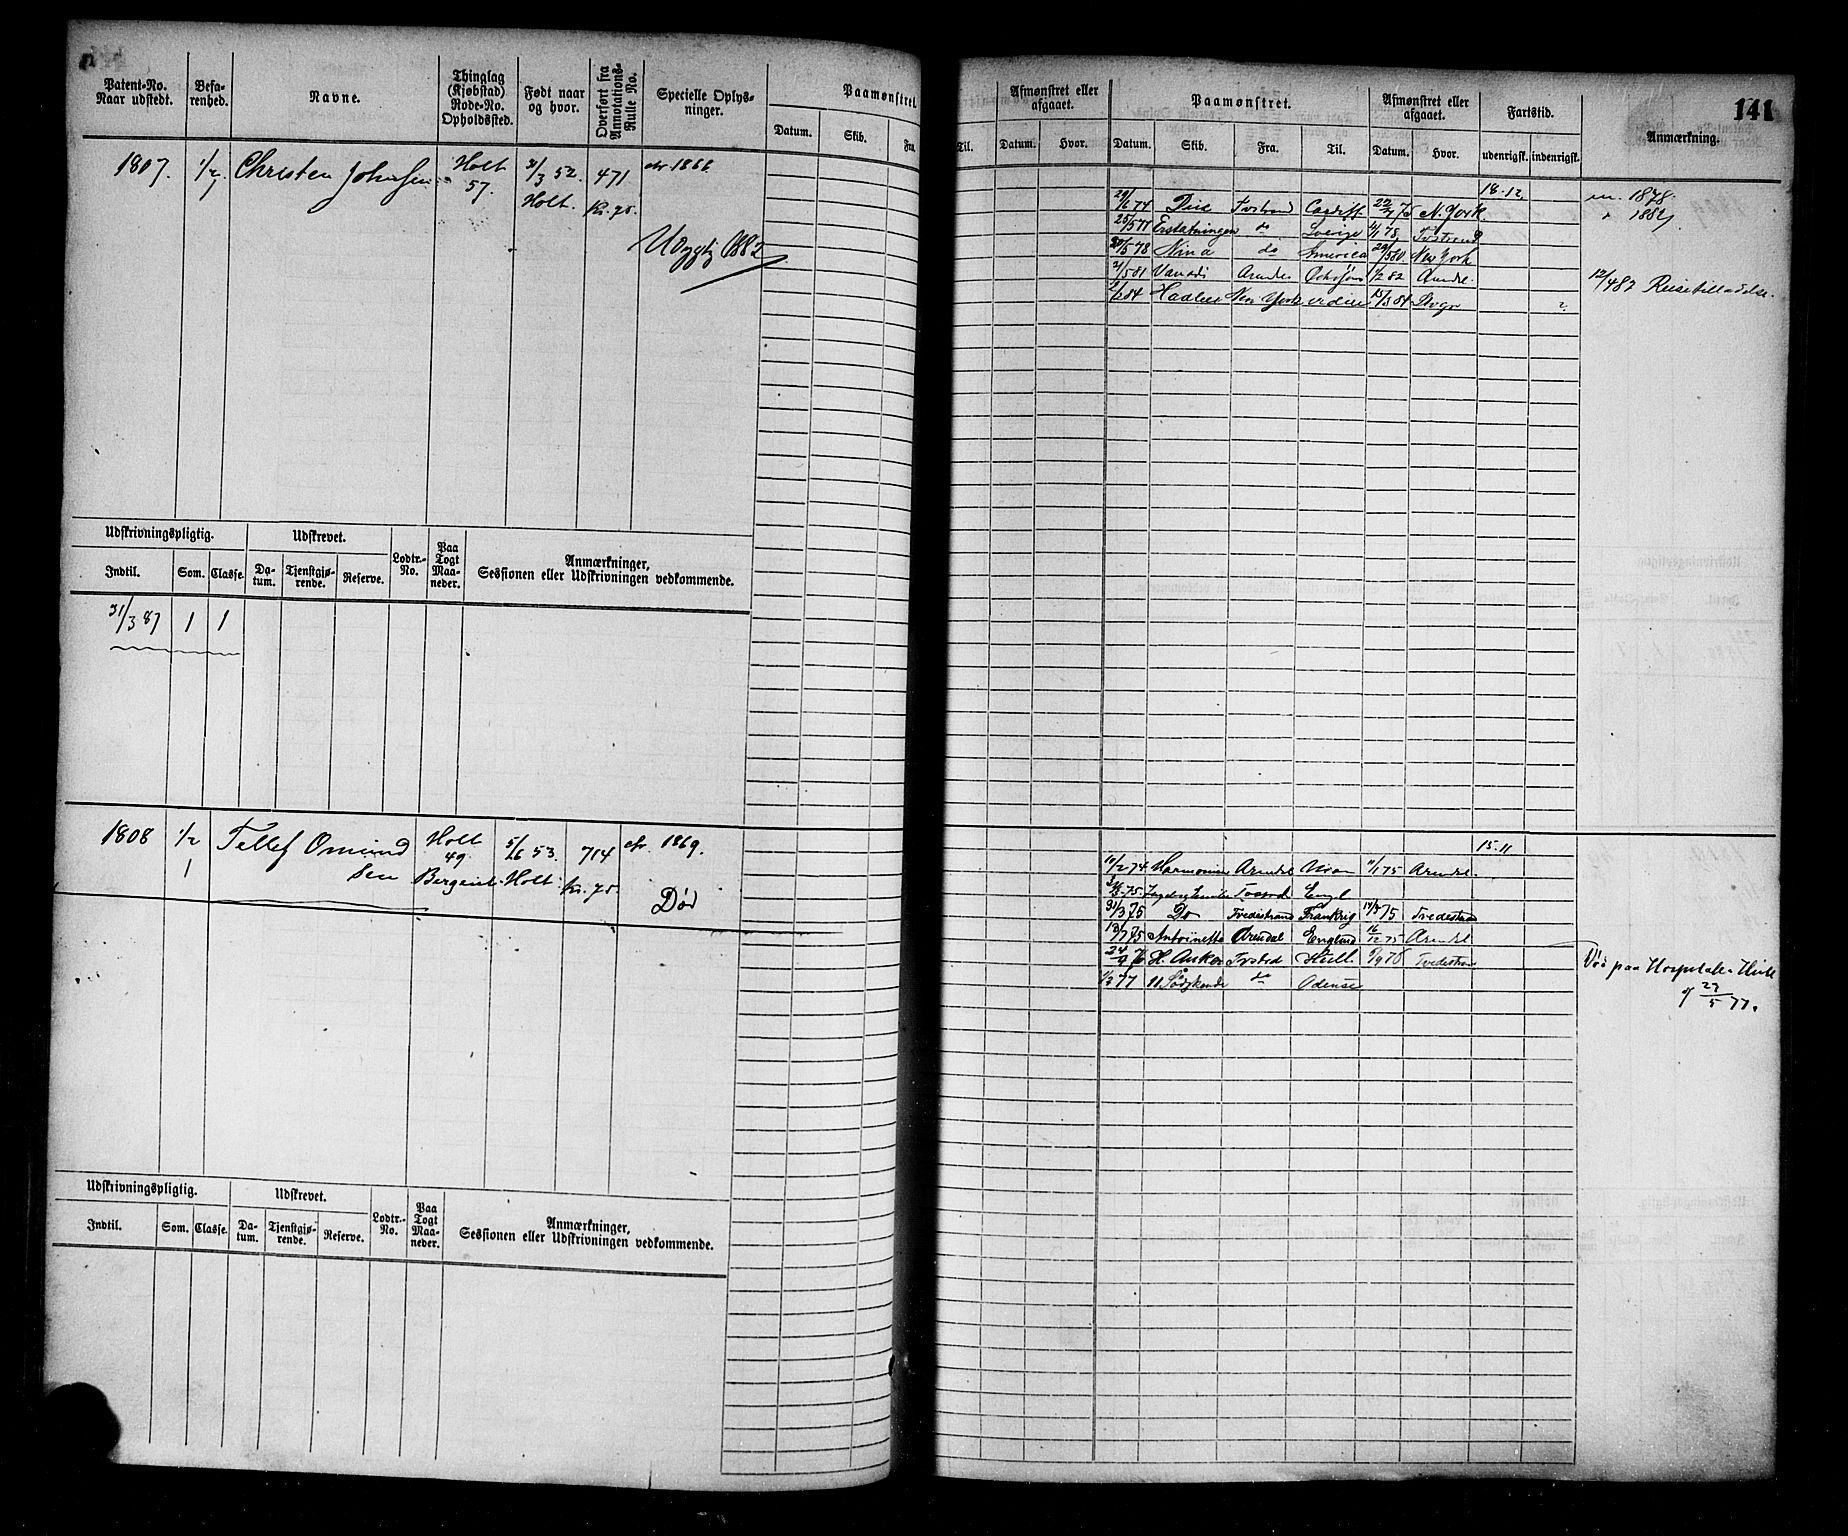 141
Patent-No. Naar udstedt.
Befa-renhed.
Navne.
Thinglag (Kjøbstad) Rode-No. Opholdssted.
Født naar og hvor.
Overført fra Annotations-Rulle No.
Specielle Oplys-ninger.
Paamønstret.
Datum. Skib. Fra.
Til.
Afmønstret eller afgaaet.
Datum. Hvor.
Paamønstret.
Datum. Skib. Fra. Til.
Afmønstret eller afgaaet.
Datum. Hvor.
Fartstid.
udenrigsk. indenrigsk.
Anmærkning.
1807. 1/2 Christen Johnsen Holt 57. 31/3 52. Holt. 471 Kr. 75.
Udygtig 1882
18.12
29/6 74 Tvstrand Cardiff 22/7 75 N. York.
25/5 77 Erstatningen do Sverige 78 Tvstrand
5 78 Nina do America 29/5 80 New York
21/5 81 Arendal 82 Arendl.
84 New York 84
1878.
1882
12/4 82 Reisetilladelse.
Udskrivningspligtig. Udskrevet. Lodtr.-No. Paa Togt Maa-neder. Anmærkninger, Sessionen eller Udskrivningen vedkommende.
Indtil. Som. Classe. Da-tum. Tjenstgjø-rende. Reserve.
31/3 87 1 1
1808 1/2 1 Tellef Omund sen Holt 49. 5/6 53. Holt 714 Kr. 75. 1869.
Død
15.11
11/2 74 Harmonien Arendal 11/1 75 Arendl.
75. Engl
31/3 75 Do Tvedestrand Frankrig 75 Tvedestran
13/7 75 Antoinette Arendal England 16/12 75 Arendl
24/4 76 H. Anker Tvsted Hull 9/9 76 Tvedestran
1/3 77 11 Södskende do Odense
Død paa Hospitalet i Hull
d 27/5 77.
Udskrivningspligtig. Udskrevet. Lodtr.-No. Paa Togt Maa-neder. Anmærkninger, Sessionen eller Udskrivningen vedkommende.
Indtil. Som. Classe. Da-tum. Tjenstgjø-rende. Reserve.